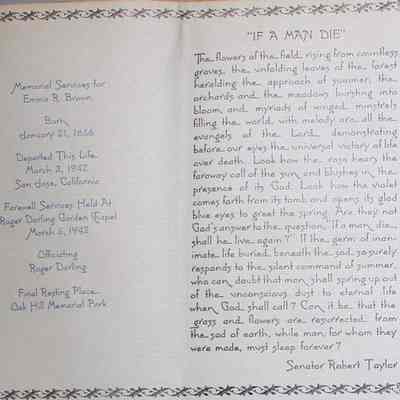 Memorial Services for
Emma R. Brown
Born
January 21, 1856
Departed This Life
March 3, 1942
San Jose, California
Farewell Services Held At
Roger Darling Garden Chapel
March 5, 1942
Officiating
Roger Darling
Final Resting Place
Oak Hill Memorial Park
"IF A MAN DIE"
The flowers of the field, rising from countless
graves, the unfolding leaves of the forest
heralding the approach of summer, the
orchards and the meadows bursting into
bloom, and myriads of winged minstrels
filling the world with melody are all the
evangels of the Lord, demonstrating
before our eyes the universal victory of life
over death. Look how the rose hears the
faraway call of the sun, and blushes in the
presence of its God. Look how the violet
comes forth from its tomb and opens its glad
blue eyes to greet the spring. Are they not
God's answer to the question, "If a man die,
shall he live again?" If the germ of inan-
imate life buried beneath the sod, so surely
responds to the silent command of summer,
who can doubt that man shall spring up out
of the unconscious dust to eternal life
when God shall call? Can it be that the
grass and flowers are resurrected from
the sod of earth, while man, for whom they
were made, must sleep forever?
Senator Robert Taylor